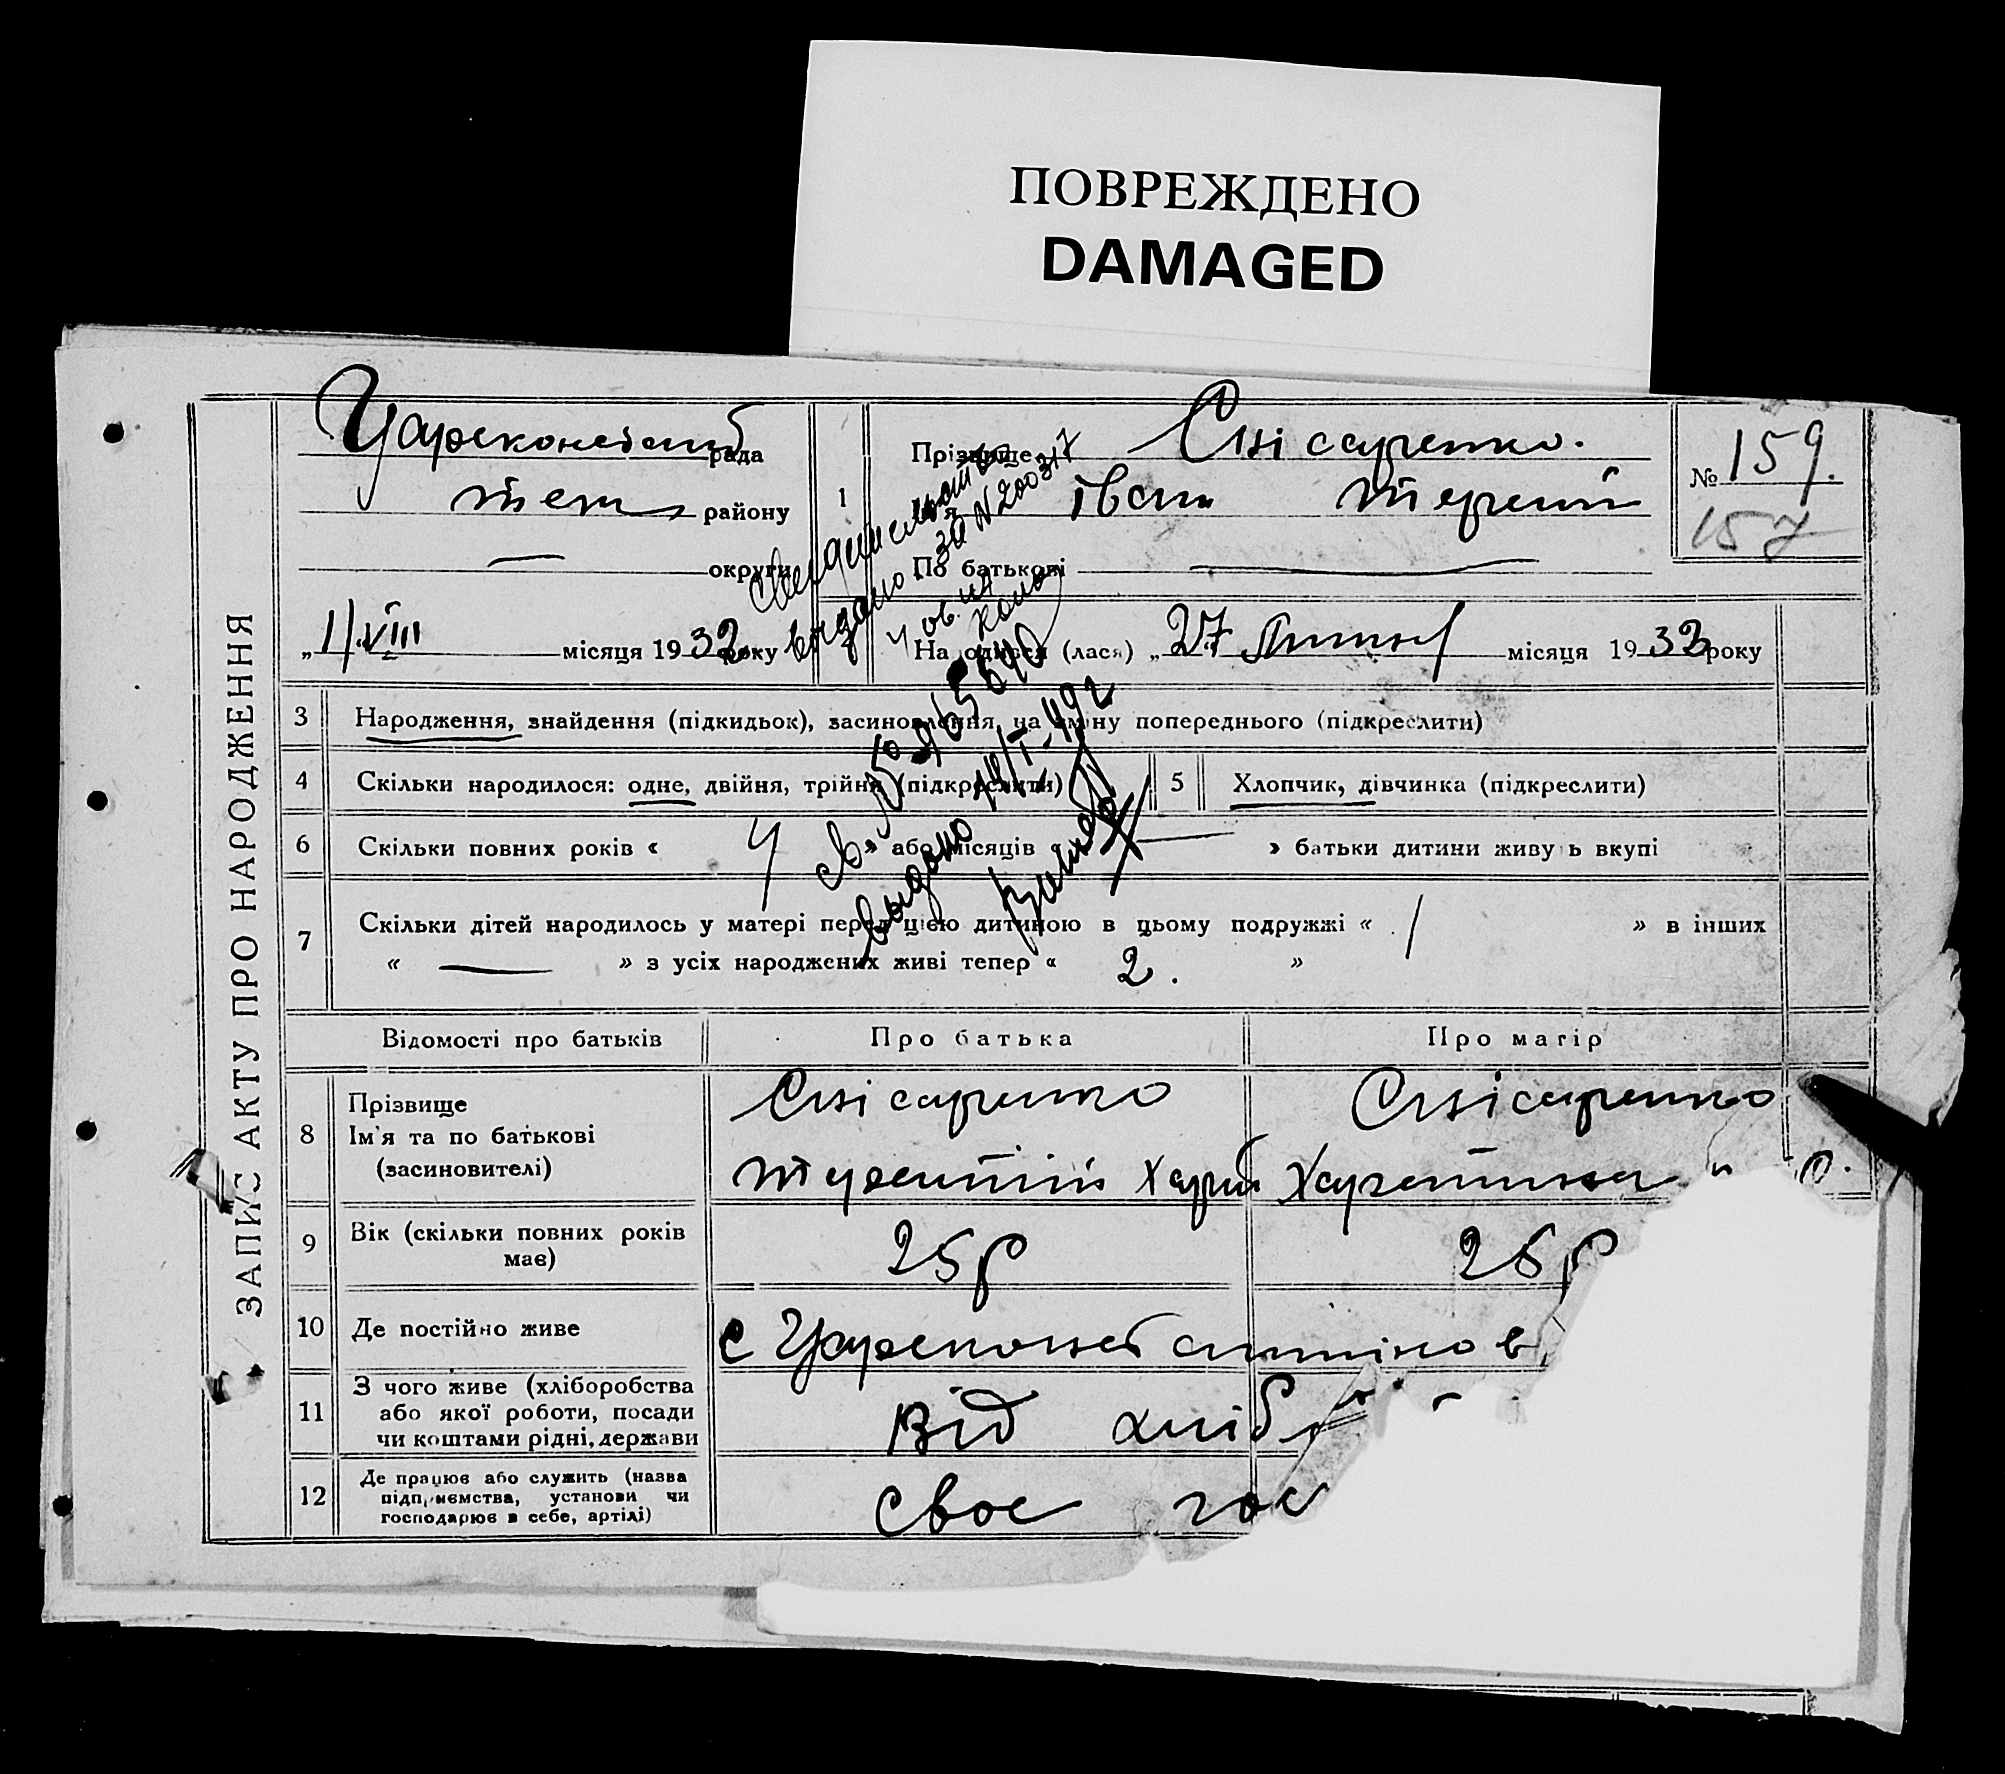 ПОВРЕЖДЕНО
DAMAGED
ЗАПИС АКТУ ПРО НАРОДЖЕННЯ
рада
району
округи
„11„ VIII місяця 1932 року
1
Прізвище Снісаренко.
Ім'я Іван
По батькові
№ 159.
157
На одився (лася) „27„ місяця 1932 року
Свидетельство
выдано за N 200317
св № 965640
выдано 14/I-49г
3 Народження, знайдення (підкидьок), засиновлення, на зміну попереднього (підкреслити)
4 Скільки народилося: одне, двійня, трійня (підкреслити)
5 Хлопчик, дівчинка (підкреслити)
6 Скільки повних років « 4 » або місяців « — » батьки дитини живуть вкупі
7 Скільки дітей народилось у матері перед цією дитиною в цьому подружжі « 1 » в інших
« — » з усіх народжених живі тепер « 2. »
Відомості про батьків Про батька Про матір
8 Прізвище Снісаренко Снісаренко
Ім'я та по батькові
(засиновителі)
9 Вік (скільки повних років має) 25р 26р
10 Де постійно живе с Царсконстантінов
11 З чого живе (хліборобства
або якої роботи, посади
чи коштами рідні, держави від хліб
12 Де працює або служить (назва
підприємства, установи чи
господарює в себе, артілі) своє гос